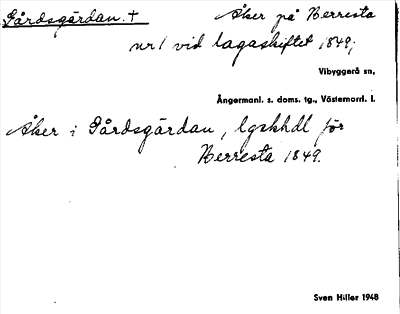 Gårdsgärdan. + Åker på Nerresta
nr 1 vid lagaskiftet 1849;
Vibyggerå sn,
Ångermanl. s. doms. tg., Västernorrl. l.
Åker i Gårdsgärdan, lgskhdl för
Nerresta 1849.
Sven Hiller 1948